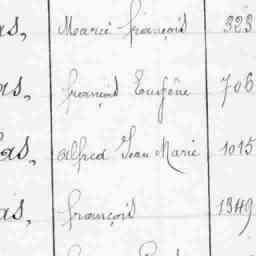 as, Marie françois 323
as, françois Eugène 706
as, alfred Jean Marie 1015
as, françois 1349